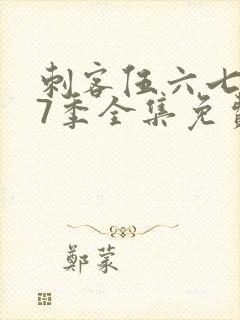 刺客伍六七
7季全集免费
鄭蒙